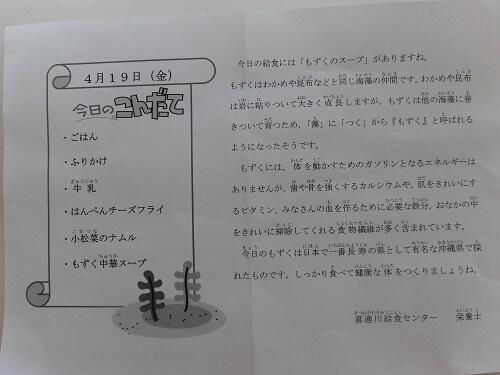 4月19日（金）
今日のこんだて
・ごはん
・ふりかけ
・牛乳
・はんぺんチーズフライ
・小松菜のナムル
・もずく中華スープ
今日の給食には「もずくのスープ」がありますね。
もずくはわかめや昆布などと同じ海藻の仲間です。わかめや昆布
は岩に貼りついて大きく成長しますが、もずくは他の海藻に巻
きついて育つため、「藻」に「つく」から『もずく』と呼ばれる
ようになったそうです。
もずくには、体を動かすためのガソリンとなるエネルギーは
ありませんが、歯や骨を強くするカルシウムや、肌をきれいにす
るビタミン、みなさんの血を作るために必要な鉄分、おなかの中
をきれいに掃除してくれる食物繊維が多く含まれています。
今日のもずくは日本で一番長寿の県として有名な沖縄県で採
れたものです。しっかり食べて健康な体をつくりましょうね。
喜連川給食センター　栄養士